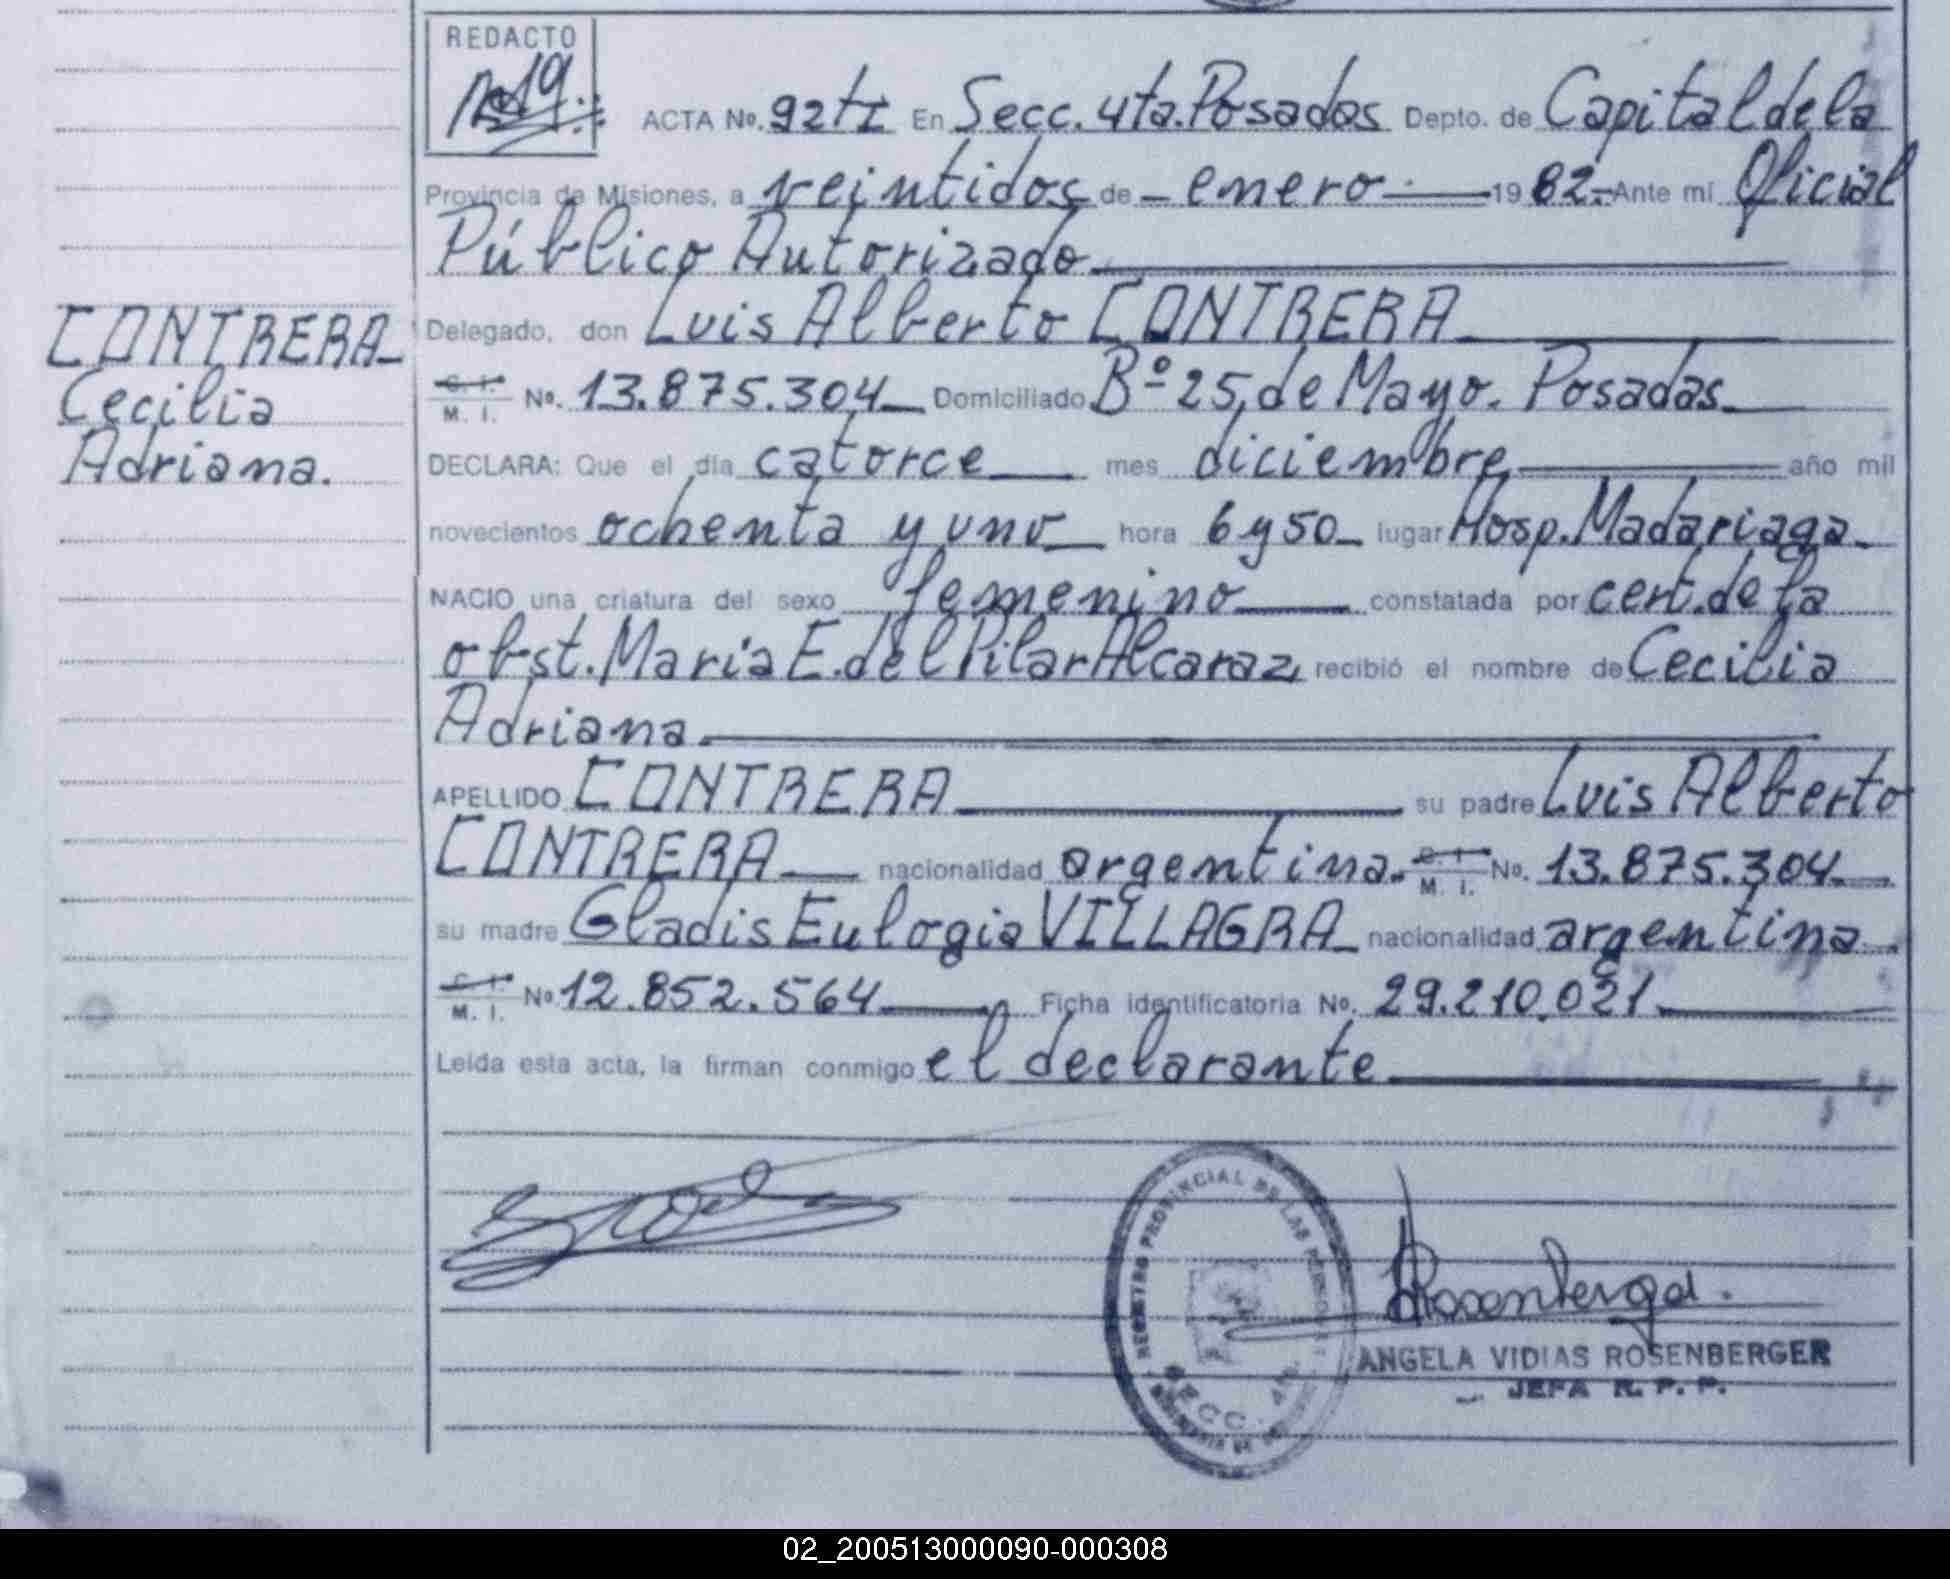 REDACTO
ACTA No. 92 tI En Secc. 4ta. Posadas Depto. de Capital de la
Provincia de Misiones, a veintidos de enero 1982.- Ante mi Oficial
Público Autorizado
CONTRERA
Cecilia
Adriana.
Delegado, don Luis Alberto CONTRERA
C. I. M. I. No. 13.875.304 Domiciliado Bº 25 de Mayo. Posadas
DECLARA: Que el día catorce mes diciembre año mil
novecientos ochenta y uno hora 6 y 50 lugar Hosp. Madariaga
NACIO una criatura del sexo femenino constatada por cert. de la
obst. Maria E. del Pilar Alcaraz, recibió el nombre de Cecilia
Adriana
APELLIDO CONTRERA su padre Luis Alberto
CONTRERA nacionalidad argentina. C. I. M. I. No. 13.875.304
su madre Gladis Eulogia VILLAGRA nacionalidad argentina
C. I. M. I. No 12.852.564 Ficha identificatoria No. 29.210.021
Leída esta acta, la firman conmigo el declarante
REGISTRO PROVINCIAL DE LAS PERSONAS
SECC. 4ta.
ANGELA VIDIAS ROSENBERGER
JEFA R. P. P.
02_200513000090-000308